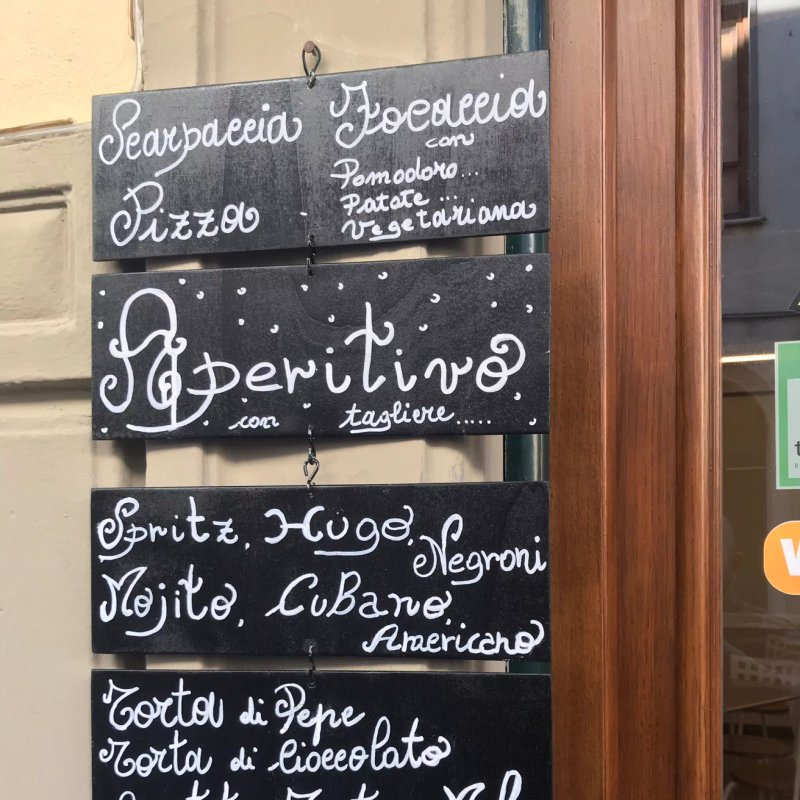 Scarpaccia
Pizza
Focaccia
con
Pomodoro...
Patate...
Vegetariana
Aperitivo
con tagliere.....
Spritz, Hugo, Negroni
Mojito, CuBano,
Americano
Torta di Pepe
Torta di Cioccolato